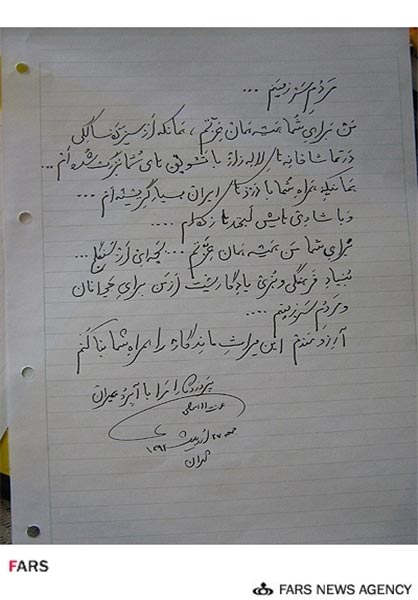 مردم سرزمینم ...
من برای شما همیشه همان عزتم ، همانکه از سیزده سالگی
در تماشاخانه های لاله زار با تشویق های شما بزرگ شده ام ...
همانکه همراه شما با دردهای ایران بسیار گریسته ام ...
و با شادی هایش لبخندها زده ام ....
برای شما من همیشه همان عزتم .... بچه ای از سنگلج ...
بنیاد فرهنگی و هنری یادگاریست از من برای جوانان
و مردم سرزمینم ....
آرزومندم این میراث ماندگار را همراه شما بنا کنم
پروردگارا مرا با آبرو بمیران
عزت الله انتظامی
جمعه ۲۷ اردیبهشت ۱۳۹۲
تهران
FARS
FARS NEWS AGENCY